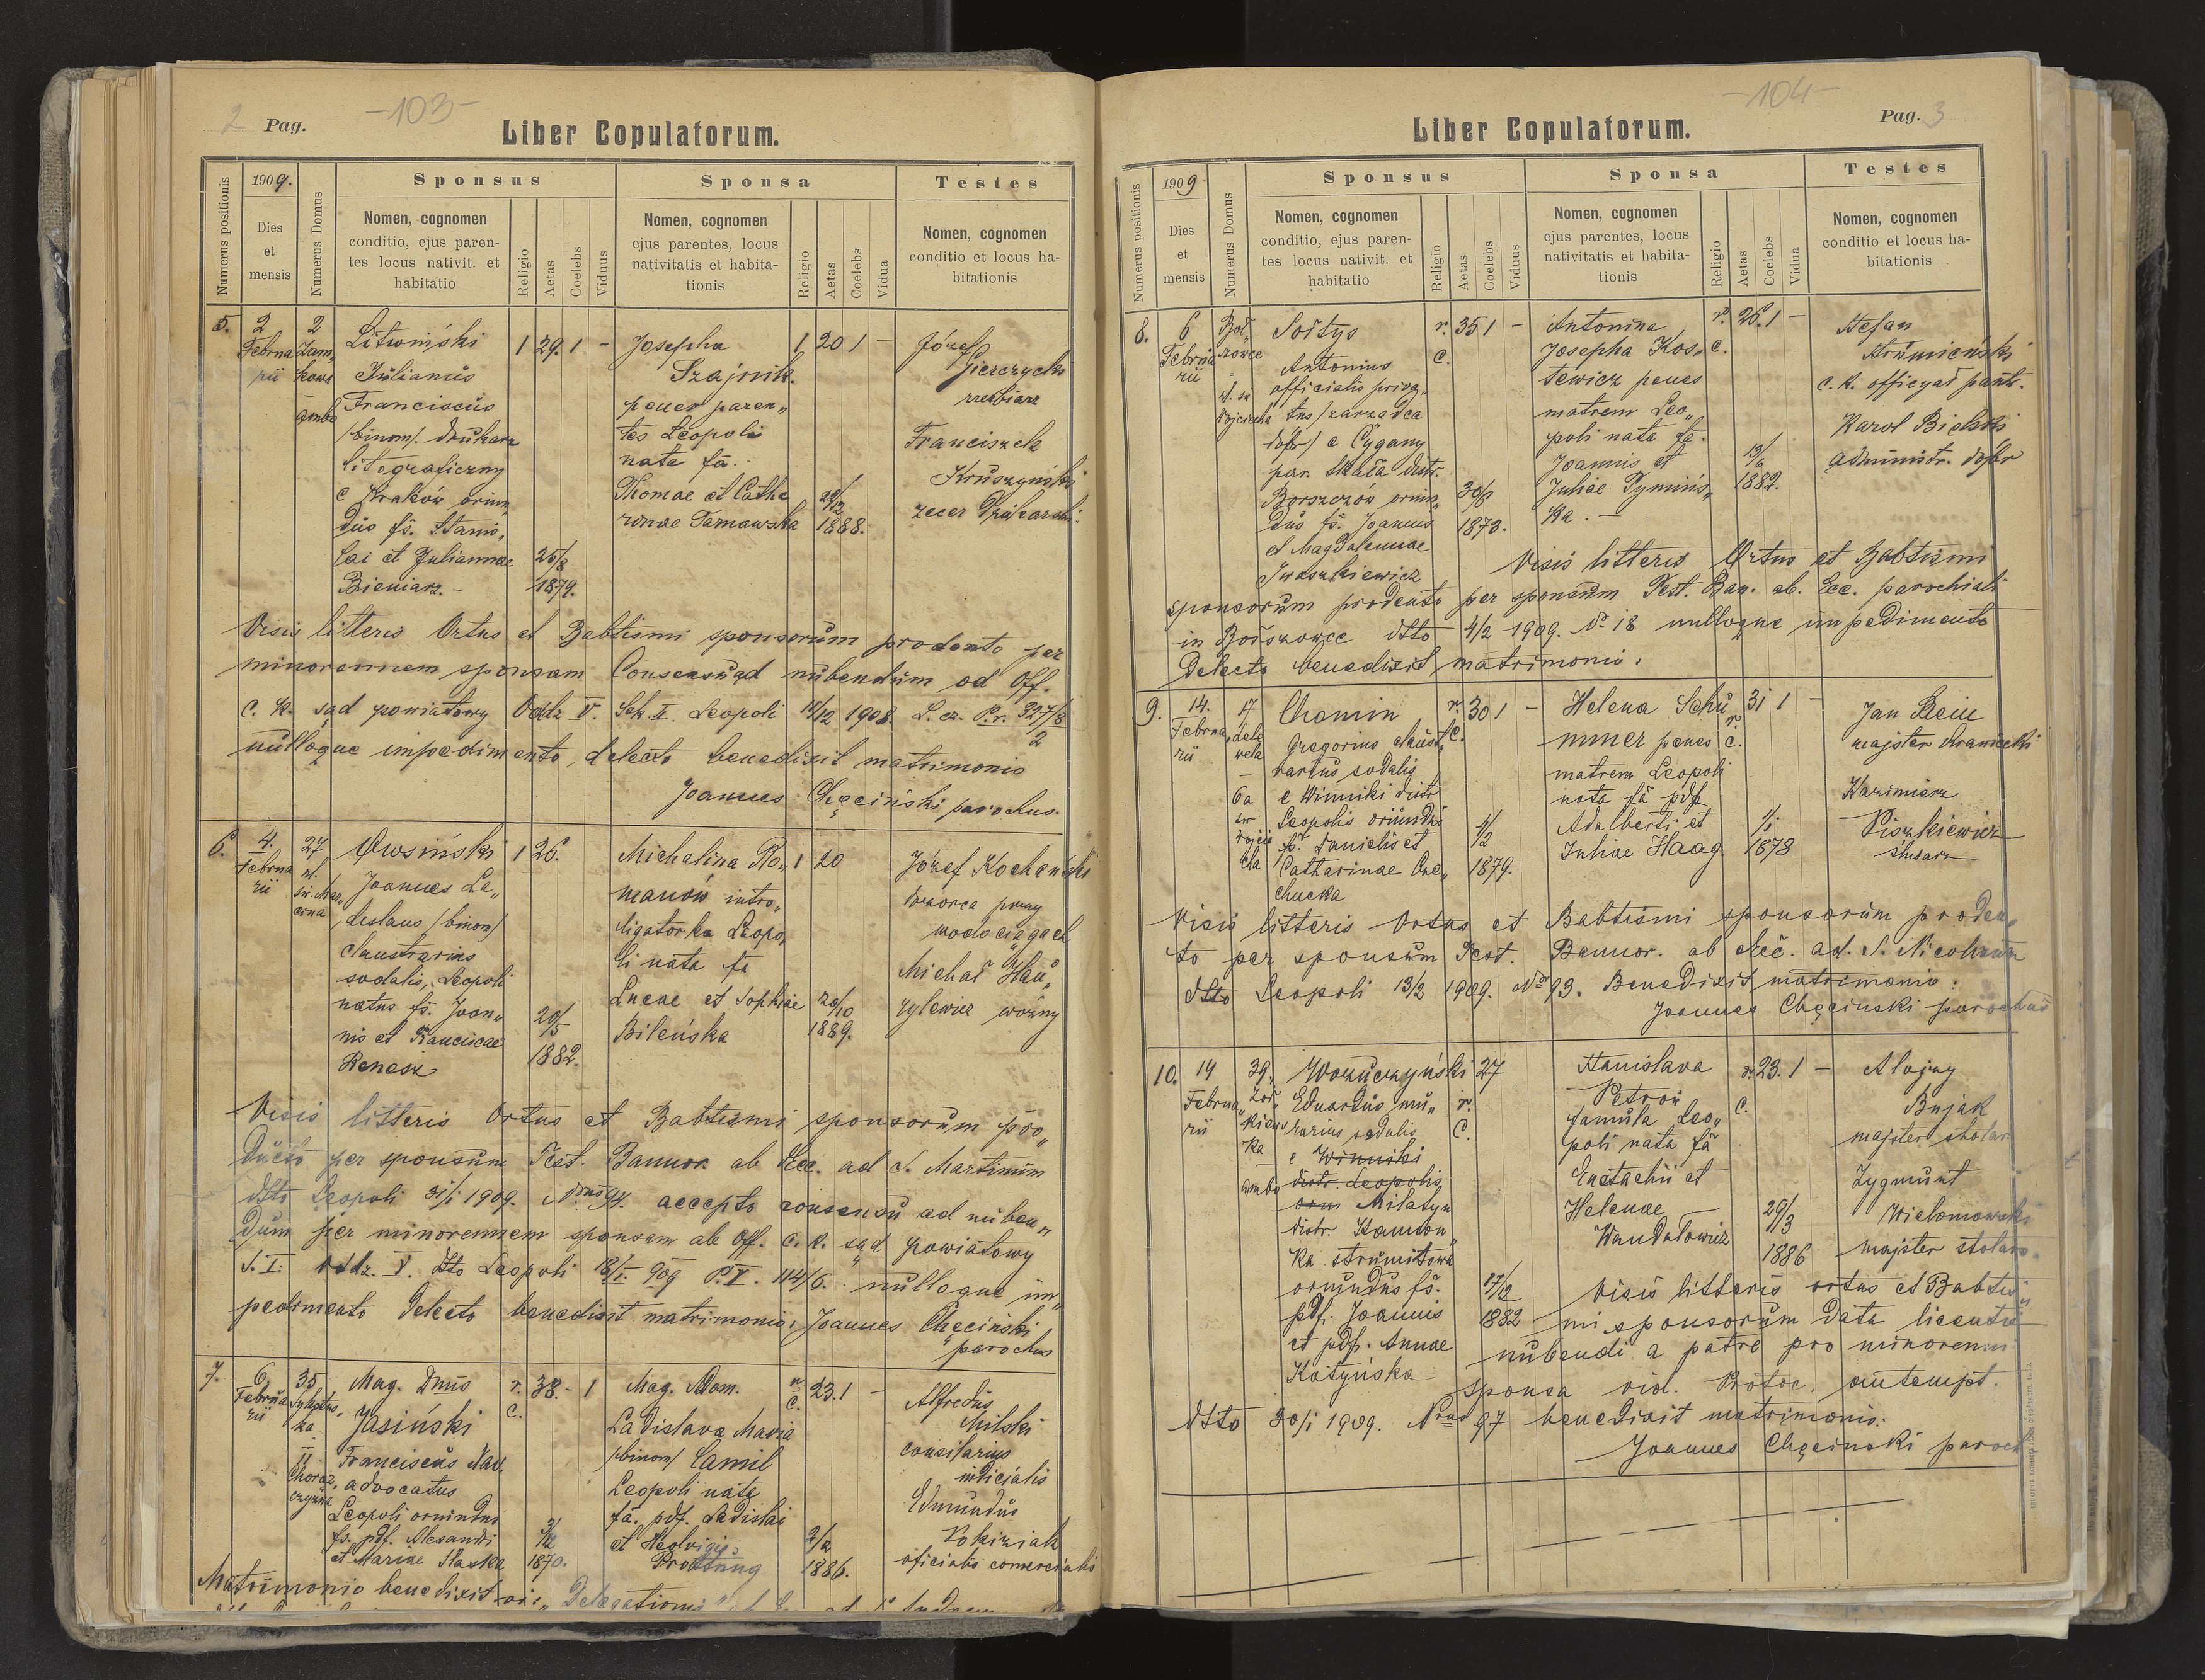 2 Pag. -103-
Liber Copulatorum.
Numerus positionis
1909.
Dies
et
mensis
Numerus Domus
Sponsus
Nomen, cognomen
conditio, ejus paren-
tes locus nativit. et
habitatio
Religio
Aetas
Coelebs
Viduus
Sponsa
Nomen, cognomen
ejus parentes, locus
nativitatis et habita-
tionis
Religio
Aetas
Coelebs
Vidua
Testes
Nomen, cognomen
conditio et locus ha-
bitationis
5.
2
Februa
rii
2
Zam„
kowa
ambo
Litwiński
Julianus
Franciscus
/binom/. drukarz
litograficzny
e Kraków oriun„
dus fs. Stanis„
lai et Juliannae
Bieniarz.-
1 29. 1 -
25/8
1879.
Josepha
Szajnik.
penes paren„
tes Leopoli
nata fa.
Thomae et Catha
rinae Tarnawska
1 20 1 -
1888.
Józef
rzeźbiarz
Franciszek
Kruszyński
zecer drukarski.
Visis litteris Ortus et Babtismi sponsorum prodento per
minorennem sponsam Consensu ad nubendum od Off.
C. K. sąd powiatowy Oddz V. Sek. I. Leopoli 1908. L. cz. P.v. 327/8
2
nulloque impedimento, detecto benedixit matrimonio
Joannes Chęciński parochus.
6.
4.
Februa
rii
27
ul.
św. Mar„
cina
Owsiński
Joannes La„
dislaus /binom/
claustrarius
sodalis, Leopoli
natus fs. Joan„
nis et Franciscae
Renesz
1 26.
20/5
1882.
Michalina Ro„
manów intro„
ligatorka Leopo„
li nata fa
Lucae et Sophiae
Bileńska
1 20
20/10
1889.
Józef Kochański
dozorca przy
wodociągach
Michał Hau„
rylewicz woźny
Visis litteris Ortus et Babtismi sponsorum pro„
ducto per sponsum Test. Bannor. ab Ecc. ad S. Martinum
dtto Leopoli 31/1 1909. 94. accepto consensu ad nuben„
dum per minorennem sponsam ab Off. C. K. sąd powiatowy
S. I. Oddz. V. dto Leopoli 909 P. V. 114/6. nulloque im„
pedimento detecto benedixit matrimonio: Joannes Chęciński
parochus
7.
6
Februa
rii
35
Sykstus„
ka.
11
Chorąż„
czyzna
Mag. Dnus
Jasiński
Franciscus Xav.
advocatus
Leopoli oriundus
fs. pdf. Alexandri
et Mariae Slaska
r. c. 38. - 1
1870.
Mag. Dom.
Ladislava Maria
/binom/ Camil
Leopoli nata
fa. pdf. Ladislai
et Hedvigis
r. c. 23. 1 -
2/2
1886.
Alfredus
Milski
consiliarius
iudicialis
Edmundus
oficialis comercialis
Matrimonio benedixit vi: „Delegationis"
-104- Pag. 3
Liber Copulatorum.
Numerus positionis
1909.
Dies
et
mensis
Numerus Domus
Sponsus
Nomen, cognomen
conditio, ejus paren-
tes locus nativit. et
habitatio
Religio
Aetas
Coelebs
Viduus
Sponsa
Nomen, cognomen
ejus parentes, locus
nativitatis et habita-
tionis
Religio
Aetas
Coelebs
Vidua
Testes
Nomen, cognomen
conditio et locus ha-
bitationis
8.
6
Februa
rii
Soltys
Antonius
officialis
/zarządca
dóbr/ e Cygany
par. Skała distr.
Borszczów oriun„
dus fs. Joannis
et Magdalennae
Iwaszkiewicz
r. c. 35 1 -
1873.
Antonina
Josepha Kos„
tewicz penes
matrem Leo„
poli nata fa.
Joannis et
Juliae Tymińs„
ka.-
r. c. 26. 1 -
13/6
1882.
Stefan
Strumieński
c. k. oficyał państ.
Karol Bielski
administr. dóbr
Visis litteris Ortus et Babtismi
sponsorum prodento per sponsum Test. Ban. ab. Ecc. parochiali
in Bołszowce dtto 4/2 1909. No 18 nulloque impedimento
detecto benedixit matrimonio.
9.
14.
Februa„
rii
17
6a
św
Wojcie
cha
Chomin
Gregorius claust„
rarius sodalis
e Winniki distr
Leopolis oriundus
fs. Danielis et
Catharinae
r. c. 30 1 -
4/2
1879.
Helena Schu
mmer penes
matrem Leopoli
nata fa pdf
Adalberti et
Juliae Haag
r. c. 31 1 -
1/1
1878
Jan Bein
majster krawiecki
Kazimierz
Piszkiewicz
ślusarz
Visis litteris Ortus et Babtismi sponsorum proden„
to per sponsum Test. Bannor. ab Ecc. ad. S. Nicolaum
dtto Leopoli 13/2 1909. No 93. Benedixit matrimonio:
Joannes Chęcinski parochus
10.
14
Februa„
rii
39.
Żół„
kiews
ka
ambo
Eduardus mu„
rarius sodalis
e Winniki
distr. Leopolis
Milatyn
distr. Kamion„
ka strumiłowa
oriundus fs.
pdf. Joannis
et pdf. Annae
Katyńska
27
r.
c.
17/12
1882
Stanislava
Petrów
famula Leo„
poli nata fa
Eustachii et
Helenae
Wandałowicz
r. c. 23. 1 -
29/3
1886
Alojzy
Bujak
majster stolar.
Zygmunt
majster stolar.
Visis litteris ortus et Babtis„
mi sponsorum data licentia
nubendi a patre pro minorenni
sponsa vid. Protoc.
dtto 30/1 1909. 97 benedixit matrimonio:
Joannes Chęcinski paroch